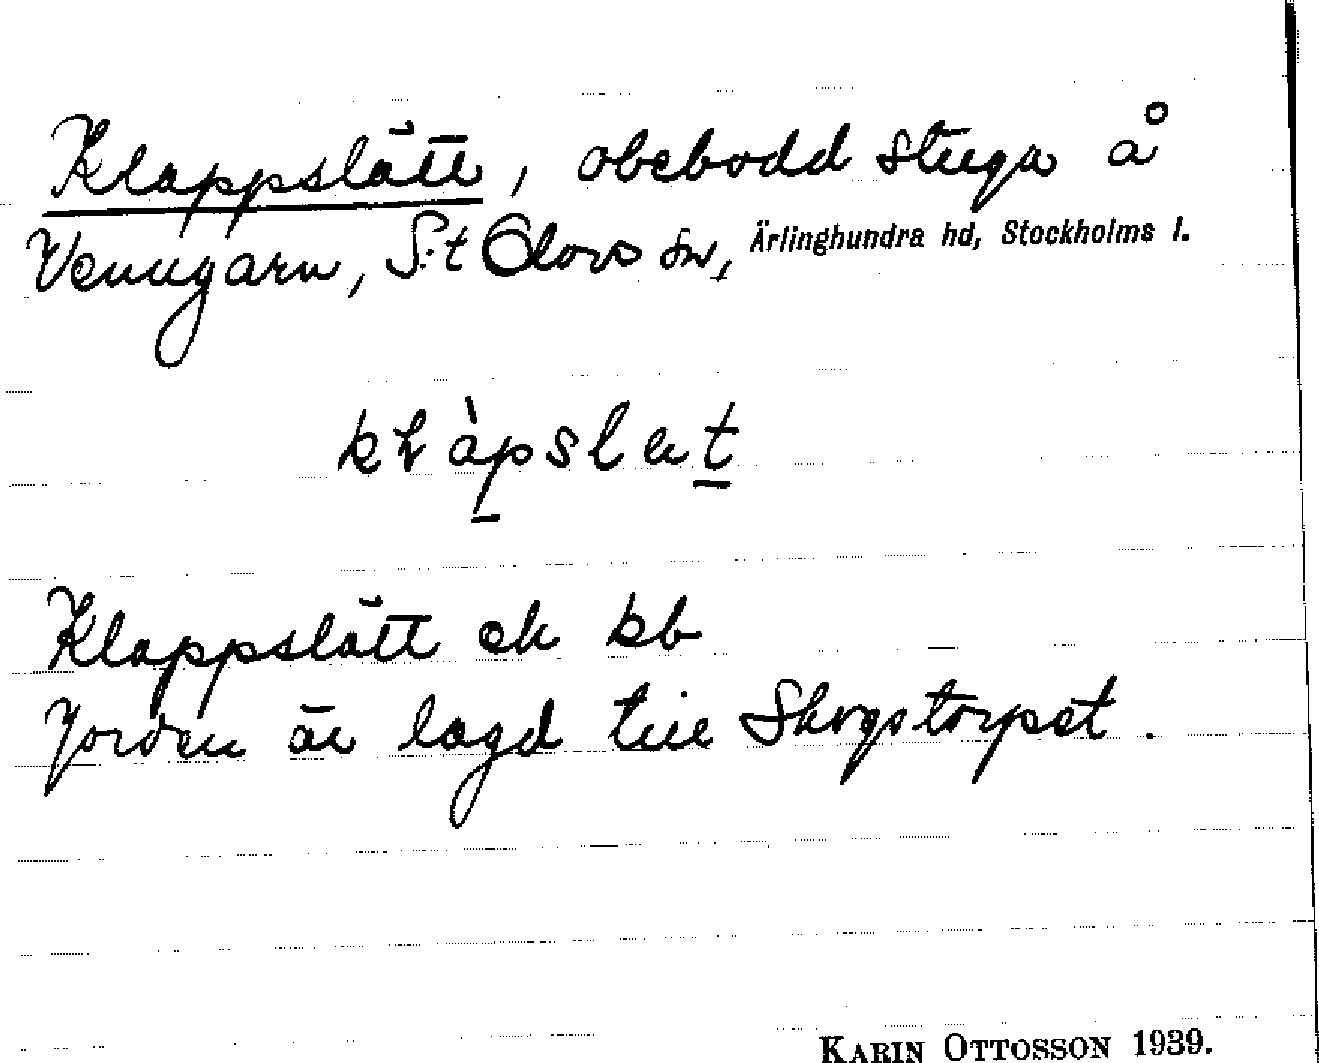 Klappslätt, obebodd stuga å
Venngarn, S:t Olovs sn, Ärlinghundra hd, Stockholms l.
klàpslät
Klappslätt ek kb
Jorden är lagd till Skogstorpet.
KARIN OTTOSSON 1939.